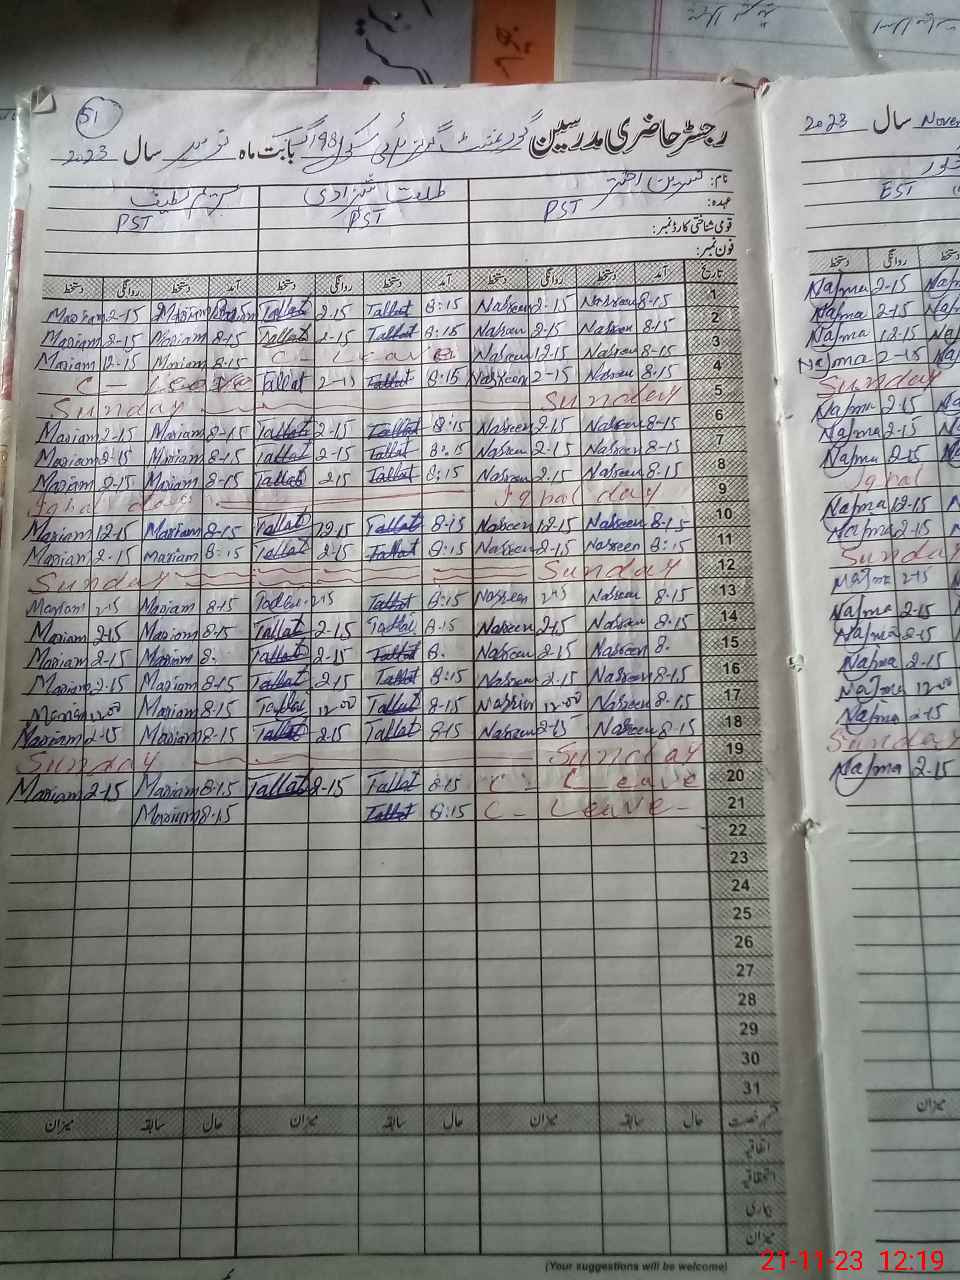 51
رجسٹر حاضری مدرسین گورنمنٹ گرلز ہائی سکول 98 بابت ماہ نومبر سال 2023
نام: نسرین اختر طلعت شہزادی مریم لطیف
عہدہ: PST PST PST
قومی شناختی کارڈ نمبر:
فون نمبر:
تاریخ آمد دستخط روانگی دستخط آمد دستخط روانگی دستخط آمد دستخط روانگی دستخط
Mariam 2-15 Mariam Tallat 2-15 Tallat 8:15 Nasreen 2-15 Nasreen 8-15 1
Mariam 2-15 Mariam 8-15 Tallat 2-15 Tallat 8:15 Nasreen 2-15 Nasreen 8-15 2
Mariam 12-15 Mariam 8-15 C - Leave Nasreen 12-15 Nasreen 8-15 3
C - Leave Tallat 2-15 Tallat 8:15 Nasreen 2-15 Nasreen 8-15 4
Sunday Sunday 5
Mariam 2-15 Mariam 8-15 Tallat 2-15 Tallat 8:15 Nasreen 2-15 Nasreen 8-15 6
Mariam 2-15 Mariam 8-15 Tallat 2-15 Tallat 8:15 Nasreen 2-15 Nasreen 8-15 7
Mariam 2-15 Mariam 8-15 Tallat 2-15 Tallat 8:15 Nasreen 2-15 Nasreen 8:15 8
Iqbal day Iqbal day 9
Mariam 12-15 Mariam 8-15 Tallat 12-15 Tallat 8-15 Nasreen 12-15 Nasreen 8-15 10
Mariam 2-15 Mariam 8:15 Tallat 2-15 Tallat 8:15 Nasreen 2-15 Nasreen 8:15 11
Sunday Sunday 12
Mariam 2-15 Mariam 8-15 2-15 Tallat 8:15 Nasreen 2-15 Nasreen 8-15 13
Mariam 2-15 Mariam 8-15 Tallat 2-15 Tallat 8-15 Nasreen 2-15 Nasreen 8-15 14
Mariam 2-15 Mariam 8. Tallat 2-15 Tallat 8. Nasreen 2-15 Nasreen 8. 15
Mariam 2-15 Mariam 8-15 Tallat 2-15 Tallat 8:15 Nasreen 2-15 Nasreen 8-15 16
Mariam 12:00 Mariam 8-15 12-00 Tallat 8-15 Nasreen 12-00 Nasreen 8-15 17
Mariam 2-15 Mariam 8-15 Tallat 2-15 Tallat 8-15 Nasreen 2-15 Nasreen 8-15 18
Sunday Sunday 19
Mariam 2-15 Mariam 8-15 Tallat 8-15 Tallat 8-15 C - Leave 20
Mariam 8-15 Tallat 8:15 C - Leave - 21
22
23
24
25
26
27
28
29
30
31
قسم رخصت حال سابقہ میزان حال سابقہ میزان حال سابقہ میزان
اتفاقیہ
استحقاقیہ
بیماری
میزان
(Your suggestions will be welcome)
2023 سال
EST
روانگی دستخط
Najma 2-15
Najma 2-15
Najma 12-15
Najma 2-15
Sunday
Najma 2-15
Najma 2-15
Najma 2-15
Iqbal
Najma 12-15
Najma 2-15
Sunday
Najma 2-15
Najma 2-15
Najma 2-15
Najma 2-15
Najma 12-00
Najma 2-15
Sunday
Najma 2-15
میزان
21-11-23 12:19